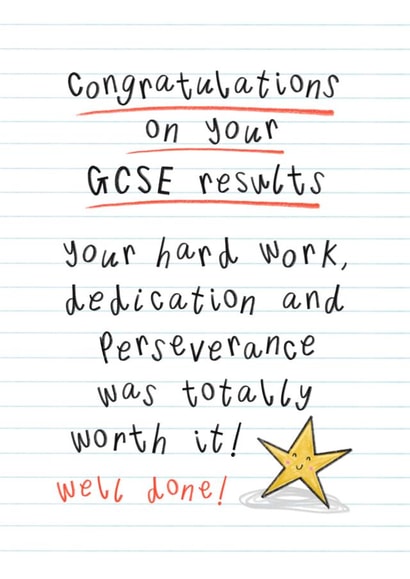 Congratulations
on your
GCSE results
your hard work,
dedication and
Perseverance
was totally
worth it!
well done!